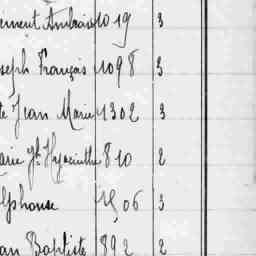 ément Ambroise 1019 3
seph François 1098 3
te Jean Marie 1302 3
arie Jh Hyacinthe 810 2
lphonse 1506 3
an Baptiste 892 2